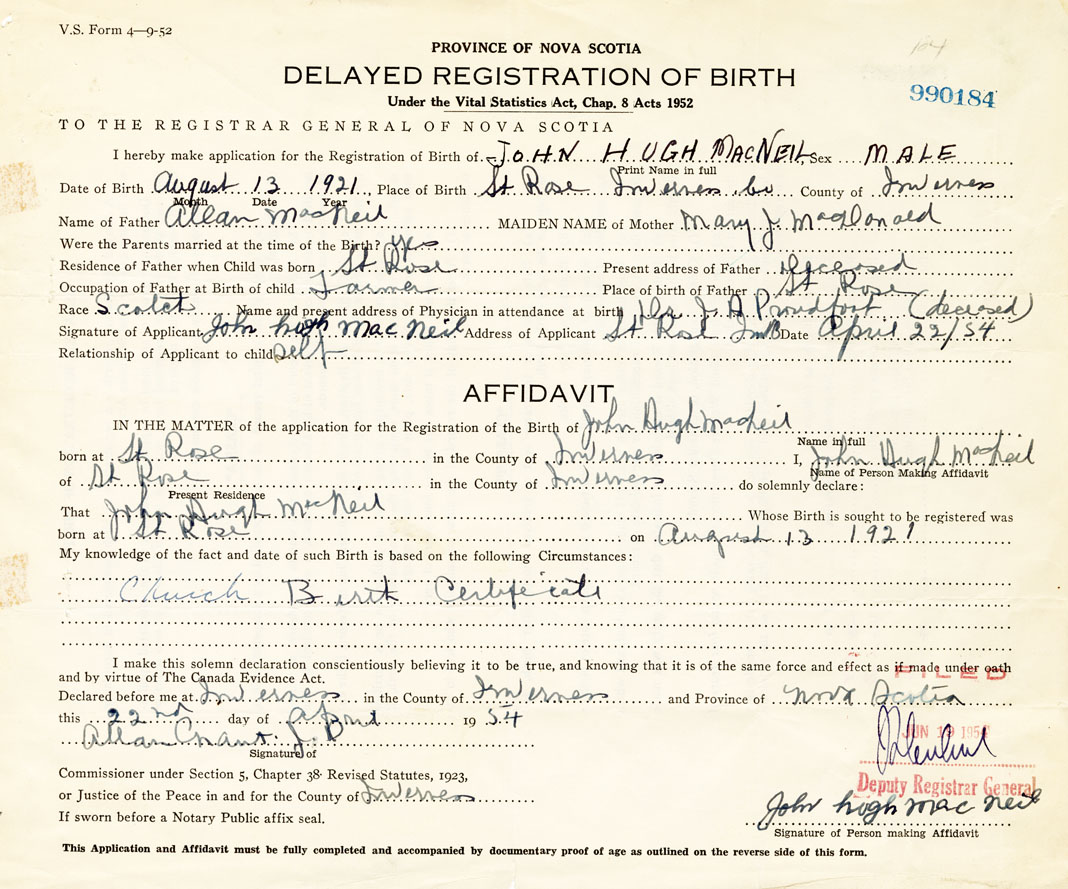 V.S. Form 4—9-52
PROVINCE OF NOVA SCOTIA
DELAYED REGISTRATION OF BIRTH
990184
Under the Vital Statistics Act, Chap. 8 Acts 1952
TO THE REGISTRAR GENERAL OF NOVA SCOTIA
I hereby make application for the Registration of Birth of JOHN HUGH MACNEIL Sex MALE
Print Name in full
Date of Birth August 13 1921, Place of Birth St Rose Inverness Co County of Inverness
Month Date Year
Name of Father Allan MacNeil MAIDEN NAME of Mother Mary J. MacDonald
Were the Parents married at the time of the Birth? yes
Residence of Father when Child was born St Rose Present address of Father Deceased
Occupation of Father at Birth of child Farmer Place of birth of Father St Rose
Race Scotch Name and present address of Physician in attendance at birth Dr J. A Proudfoot (decesed)
Signature of Applicant John hugh Mac Neil Address of Applicant St Rose Inv Date April 22/54
Relationship of Applicant to child self
AFFIDAVIT
IN THE MATTER of the application for the Registration of the Birth of John Hugh MacNeil
Name in full
born at St Rose in the County of Inverness I, John Hugh MacNeil
Name of Person Making Affidavit
of St Rose in the County of Inverness do solemnly declare:
Present Residence
That John Hugh MacNeil Whose Birth is sought to be registered was
born at St Rose on August 13 1921
My knowledge of the fact and date of such Birth is based on the following Circumstances:
Church Birth Certificate
I make this solemn declaration conscientiously believing it to be true, and knowing that it is of the same force and effect as if made under oath
and by virtue of The Canada Evidence Act.
FILED
Declared before me at Inverness in the County of Inverness and Province of Nova Scotia
this 22nd day of April 1954
JUN 19
Allan J.P
Signature of
Commissioner under Section 5, Chapter 38 Revised Statutes, 1923,
Deputy Registrar General
or Justice of the Peace in and for the County of Inverness
John hugh mac Neil
If sworn before a Notary Public affix seal.
Signature of Person making Affidavit
This Application and Affidavit must be fully completed and accompanied by documentary proof of age as outlined on the reverse side of this form.